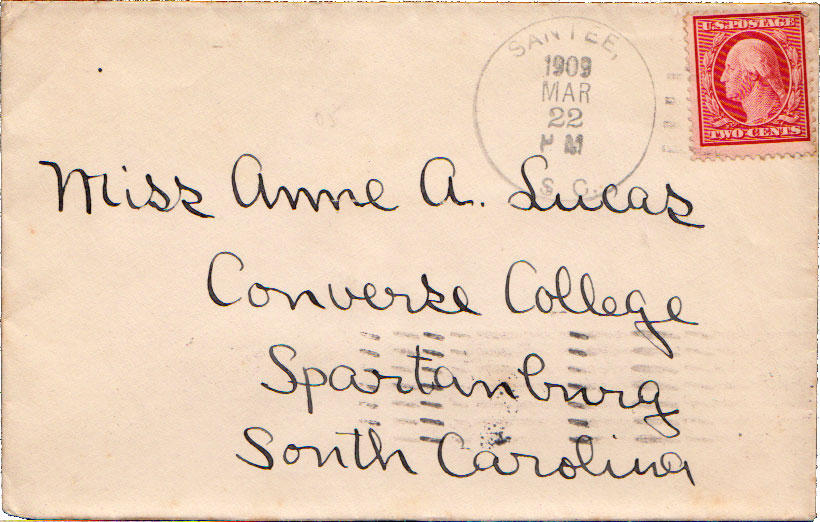 SANTEE,
1909
MAR
22
P M
S. C.
U.S. POSTAGE
TWO CENTS
Miss Anne A. Lucas
Converse College
Spartanburg
South Carolina